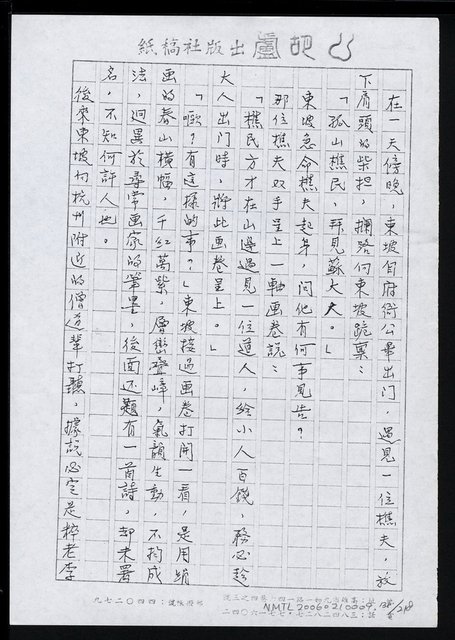 紙稿社版出廬葫山
在一天傍晚，東坡自府衙公畢出門，遇見一位樵夫，放
下肩頭的柴担，攔路向東坡跪稟：
「孤山樵民，拜見蘇大夫。」
東坡急命樵夫起身，問他有何事見告？
那位樵夫双手呈上一軸画卷說：
「樵民方才在山邊遇見一位道人，給小人百錢，務必趁
大人出門時，將此画卷呈上。」
「噢？有這樣的事？」東坡接過画卷打開一看，是用絹
画的春山橫幅，千紅萬紫，層巒疊峰，氣韻生動，不拘成
法，迥異於尋常画家的筆墨，後面还題有一首詩，却未署
名，不知何許人也。
後來東坡向杭州附近的僧道輩打聽，據說必定是粹老李
九七二〇四四〇
NMTL20060210009